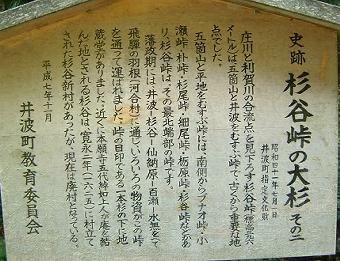 史跡 杉谷峠の大杉 その二
昭和四十一年七月一日
井波町指定文化財
庄川と利賀川の合流点を見下ろす杉谷峠
メートル)は五箇山と井波をむすぶ峠で、古くから重要な地
点でした。
五箇山と平地をむすぶ峠には、南側からブナオ峠・小
瀬峠・朴峠・杉尾峠・細尾峠・栃原峠・杉谷峠などがあ
り、杉谷峠はその最北端部の峠です。
藩政期には、井波-杉谷-仙納原-百瀬-水無をへて
飛騨の羽根(河合村)に通じ、いろいろの物資がこの峠
を通って運ばれました。峠の目印である一本杉の下に地
蔵堂があります。近くに本願寺五代綽如上人が庵を結
んだ地とされる杉谷は、寛永二年(一六二五)に村立て
されて杉谷新村があったが、現在は廃村となっている。
平成七年十一月
井波町教育委員会